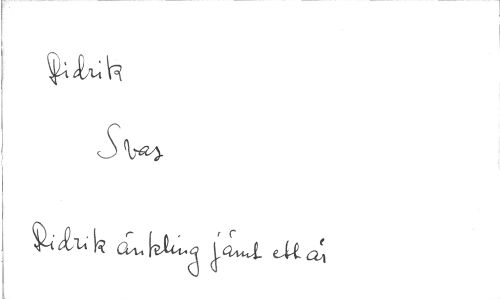 Didrik
Svas
Didrik änkling jämt ett år